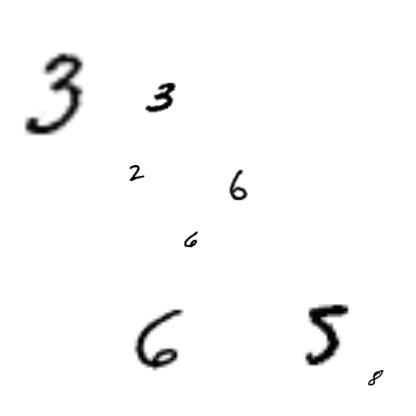 3 3
2 6
6
6 5
8